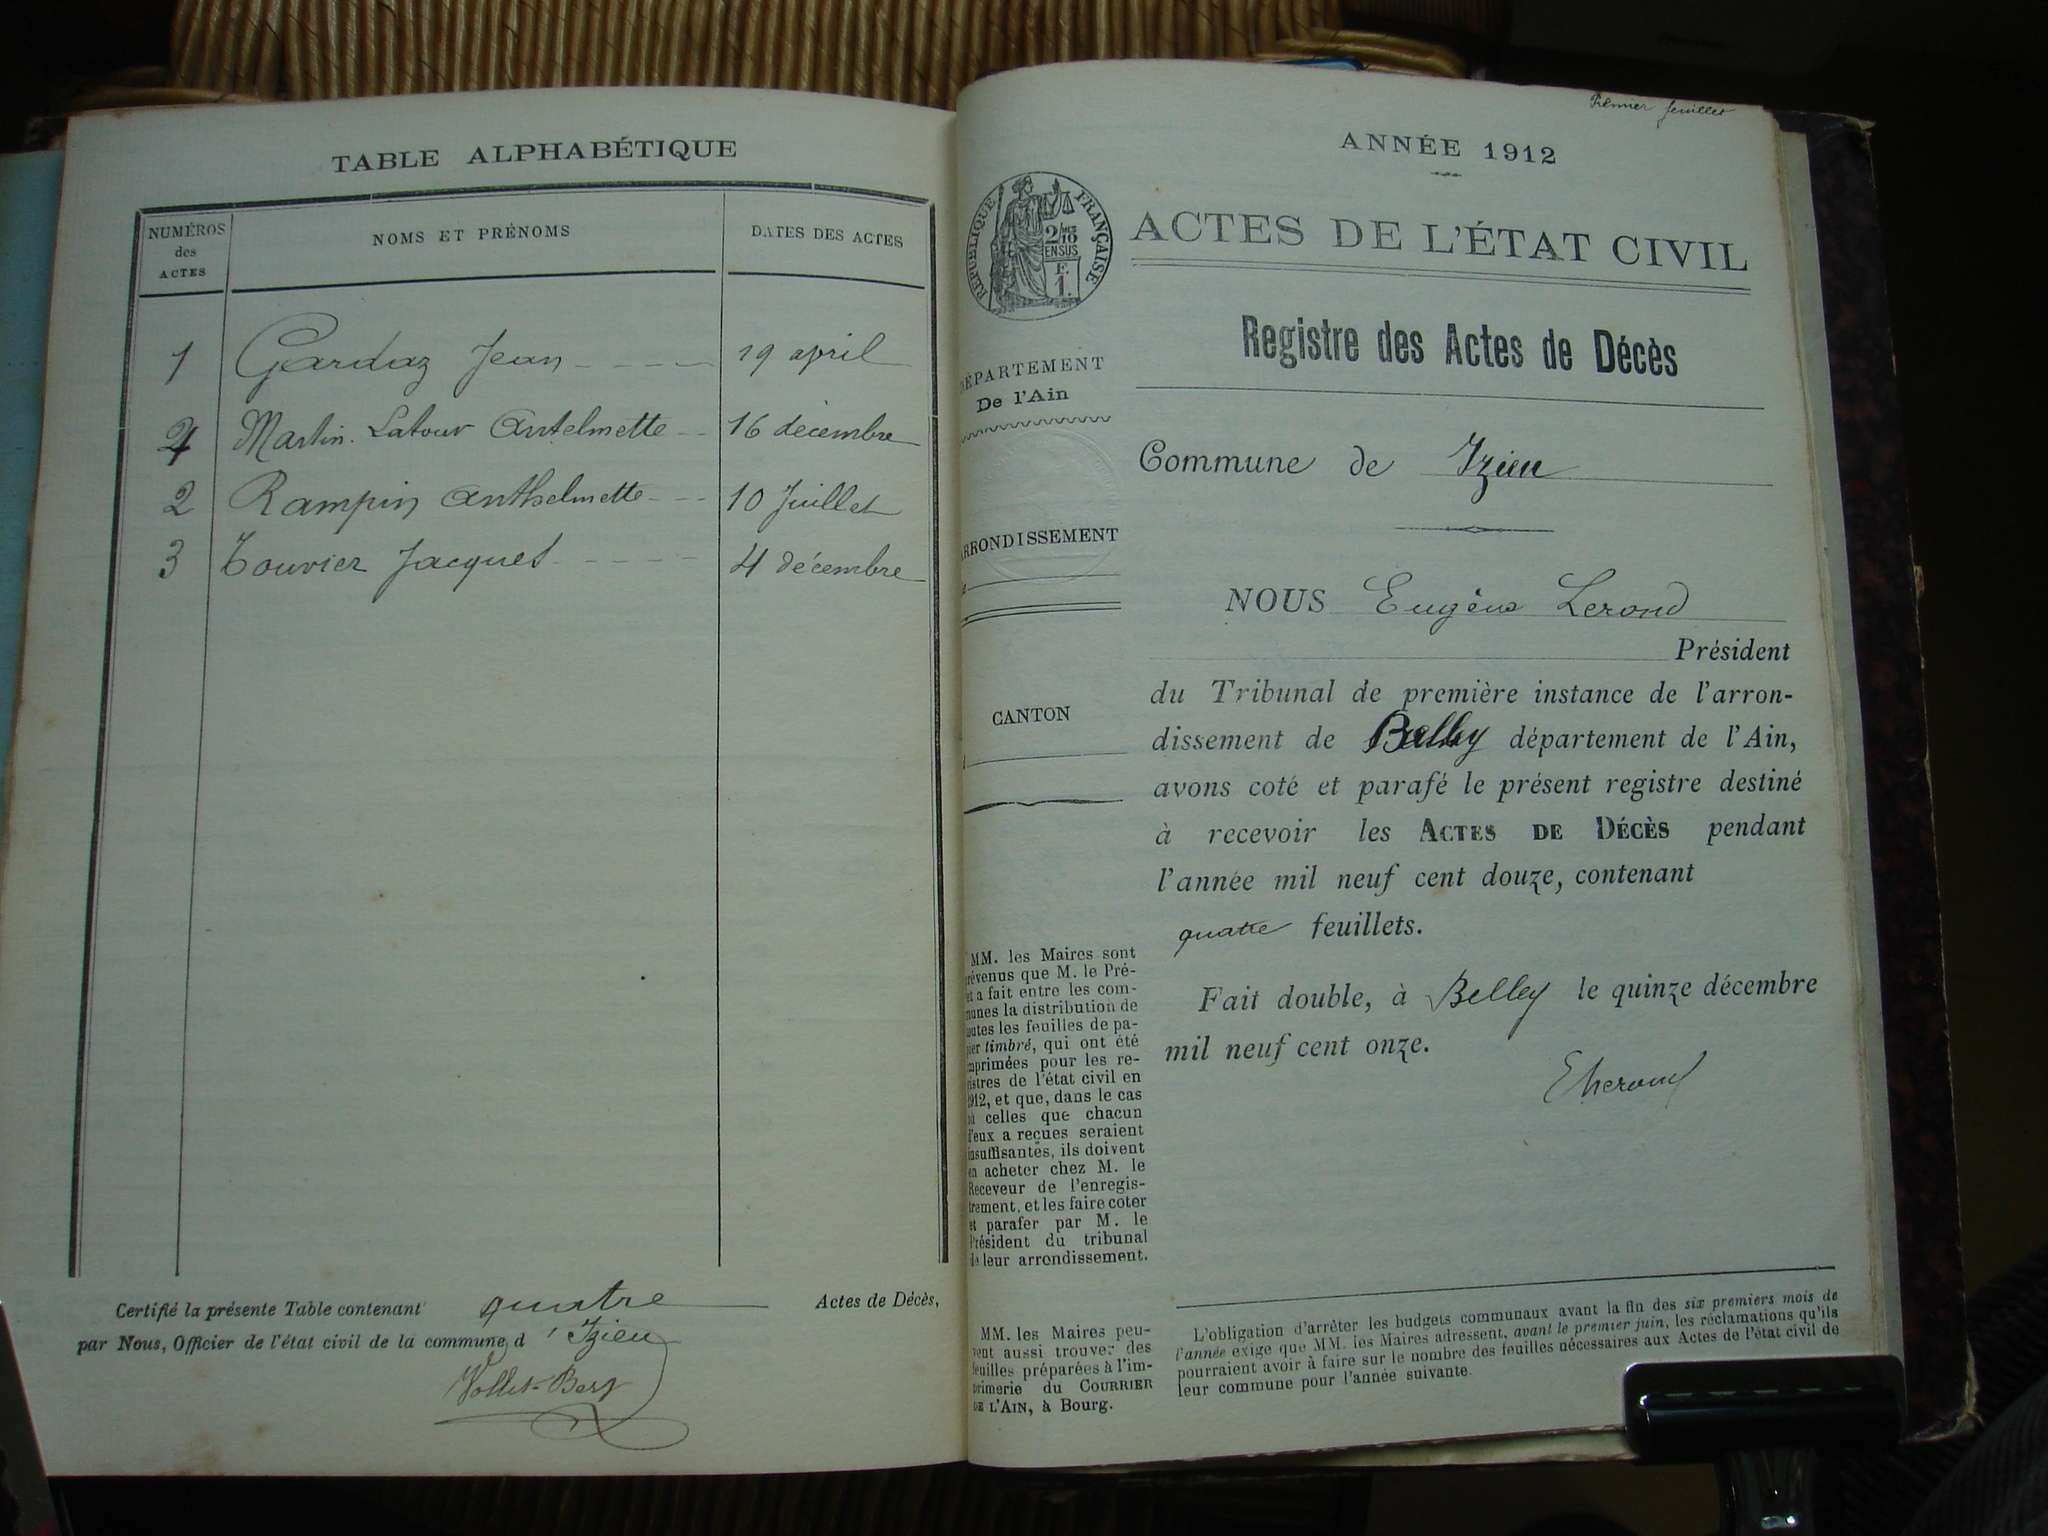 TABLE ALPHABÉTIQUE
NUMÉROS des ACTES NOMS ET PRÉNOMS DATES DES ACTES
1 Gardaz Jean 19 april
4 Martin-Latour Antelmette 16 décembre
2 Rampin Anthelmette 10 Juillet
3 Touvier Jacques 4 décembre
Certifié la présente Table contenant quatre Actes de Décès,
par Nous, Officier de l'état civil de la commune d'Izieu
Premier feuillet
ANNÉE 1912
RÉPUBLIQUE FRANÇAISE
2/10 EN SUS
F. 1.
ACTES DE L'ÉTAT CIVIL
Registre des Actes de Décès
DÉPARTEMENT
De l'Ain
Commune de Izieu
ARRONDISSEMENT
NOUS Eugène Lerond
Président
du Tribunal de première instance de l'arron-
CANTON
dissement de Belley département de l'Ain,
avons coté et parafé le présent registre destiné
à recevoir les ACTES DE DÉCÈS pendant
l'année mil neuf cent douze, contenant
quatre feuillets.
Fait double, à Belley le quinze décembre
mil neuf cent onze.
ELerond
MM. les Maires sont
prévenus que M. le Pré-
fet a fait entre les com-
munes la distribution de
toutes les feuilles de pa-
pier timbré, qui ont été
imprimées pour les re-
gistres de l'état civil en
1912, et que, dans le cas
où celles que chacun
d'eux a reçues seraient
insuffisantes, ils doivent
en acheter chez M. le
Receveur de l'enregis-
trement, et les faire coter
et parafer par M. le
Président du tribunal
de leur arrondissement.
MM. les Maires peu-
vent aussi trouver des
feuilles préparées à l'im-
primerie du COURRIER
DE L'AIN, à Bourg.
L'obligation d'arrêter les budgets communaux avant la fin des six premiers mois de
l'année exige que MM. les Maires adressent, avant le premier juin, les réclamations qu'ils
pourraient avoir à faire sur le nombre des feuilles nécessaires aux Actes de l'état civil de
leur commune pour l'année suivante.